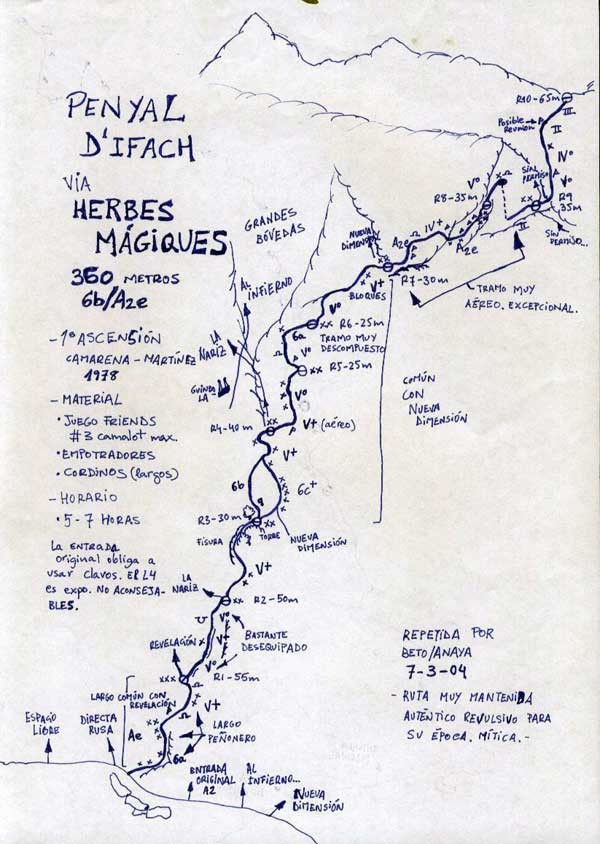 PENYAL
D'IFACH
VIA
HERBES
MÁGIQUES
360 METROS
6b/A2e
- 1ª ASCENSIÓN
CAMARENA - MARTÍNEZ
1978
- MATERIAL
• JUEGO FRIENDS
#3 camalot max.
• EMPOTRADORES
• CORDINOS (largos)
- HORARIO
• 5-7 HORAS
La ENTRADA
original obliga a
usar clavos. El L4
es expo. No ACONSEJA-
BLES.
R10-65m
III
II
Posible
Reunion
IVº
Vº
SIN
PERMISO
R9
35m
SIN
PERMISO...
II
Vº
R8-35m
IV+
A2e
A2e
NUEVA
DIMENSIÓN
R7-30m
TRAMO MUY
AÉREO. EXCEPCIONAL.
V+
BLOQUES
Vº
GRANDES
BÓVEDAS
AL
INFIERNO
R6-25m
TRAMO MUY
DESCOMPUESTO
6a
Vº
R5-25m
Vº
LA
NARIZ
GUINDA
LA
COMÚN
CON
NUEVA
DIMENSIÓN
R4-40m
V+ (aéreo)
V+
6b
6c+
R3-30m
FISURA
TORRE
NUEVA
DIMENSIÓN
V+
LA
NARIZ
R2-50m
BASTANTE
DESEQUIPADO
Vº
V+
Vº
REVELACIÓN
R1-55m
LARGO COMÚN CON
REVELACIÓN
V+
Ae
LARGO
PEÑONERO
6a
ESPACIO
LIBRE
DIRECTA
RUSA
ENTRADA
ORIGINAL
A2
AL
INFIERNO...
NUEVA
DIMENSIÓN
REPETIDA POR
BETO/ANAYA
7-3-04
- RUTA MUY MANTENIDA
AUTÉNTICO REVULSIVO PARA
SU ÉPOCA. MÍTICA.-